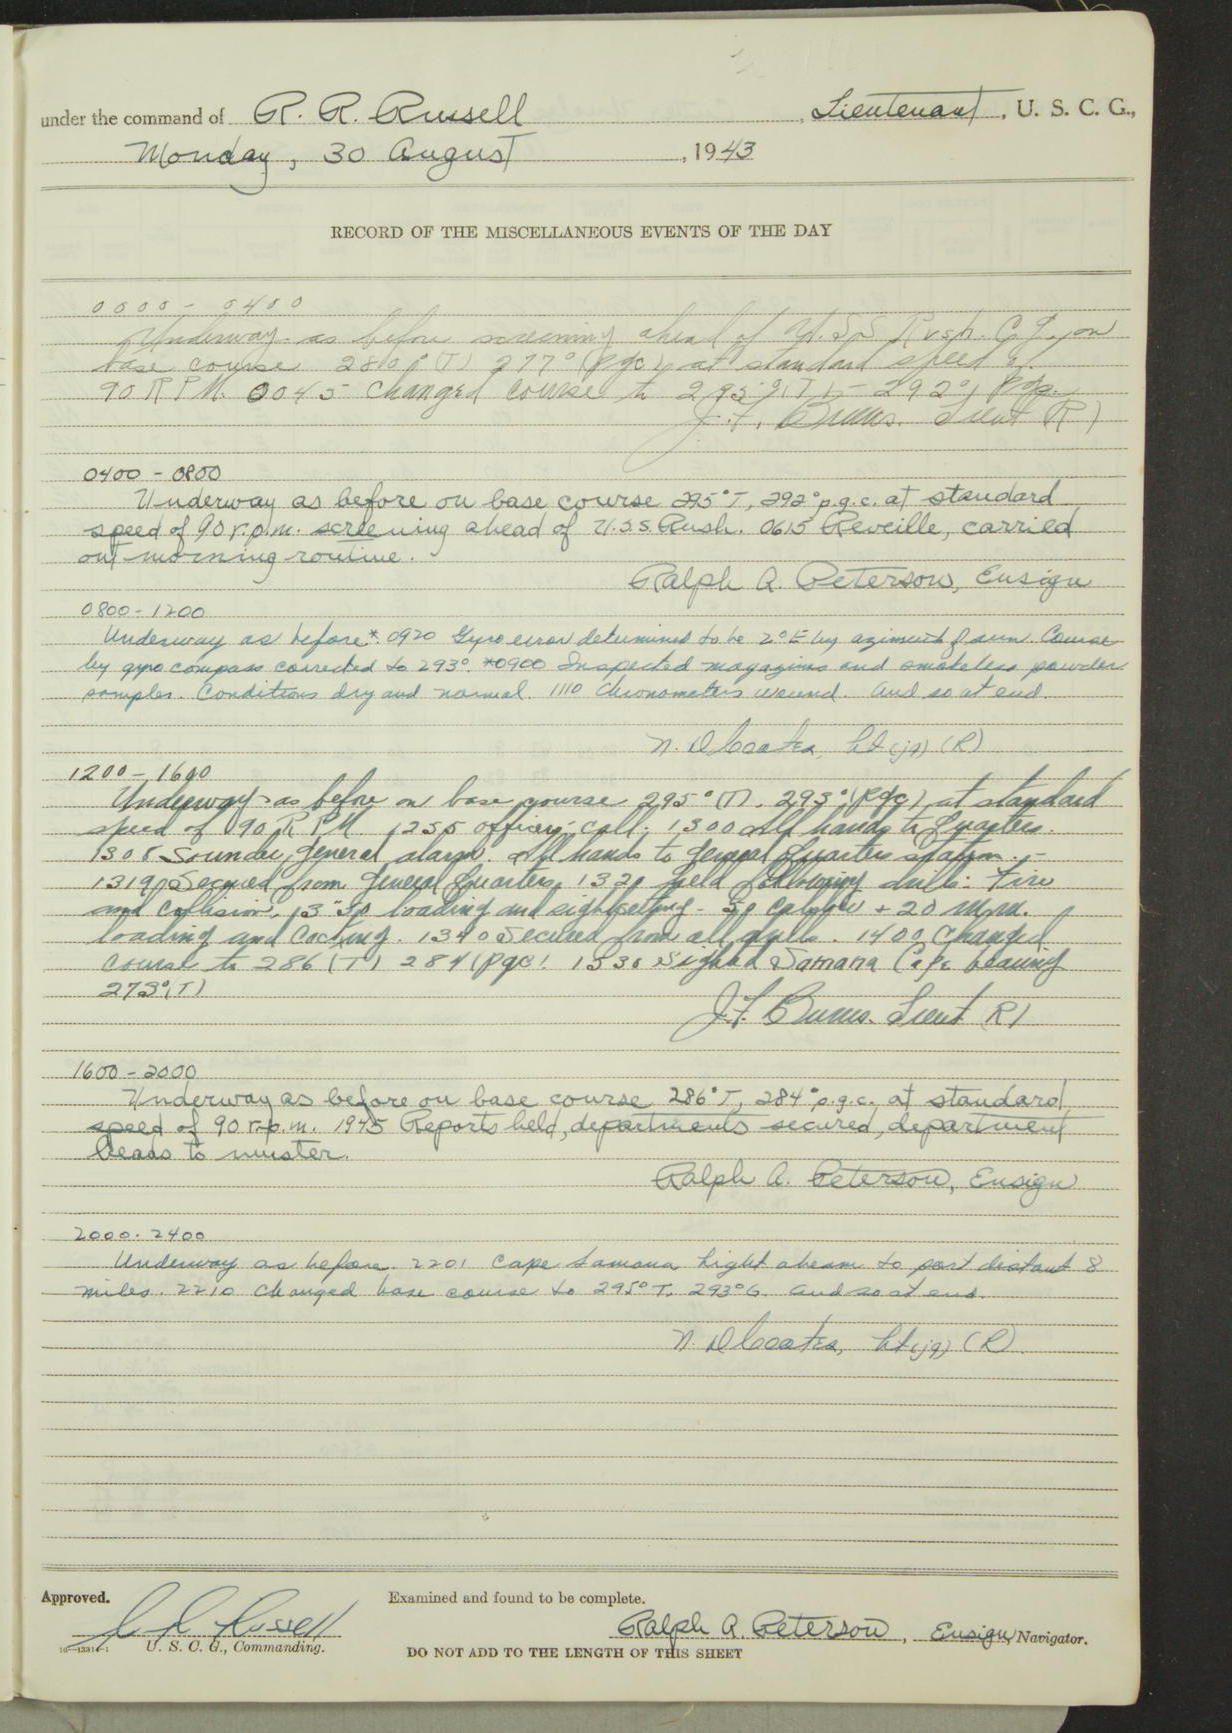 under the command of R. R. Russell, Lieutenant, U. S. C. G.,
Monday, 30 August, 1943
RECORD OF THE MISCELLANEOUS EVENTS OF THE DAY
0000 - 0400
Underway as before screening ahead of U.S.S. Rush. C.G. on
base course 280°(T) 277° (pgc) at standard speed of
90 R.P.M. 0045 Changed course to 295°(T) - 292° pgc.
J. F. Burns. Lieut (R)
0400 - 0800
Underway as before on base course 295°T, 292° p.g.c. at standard
speed of 90 r.p.m. screening ahead of U.S.S. Rush. 0615 Reveille, carried
out morning routine.
Ralph A. Peterson, Ensign
0800 - 1200
Underway as before*. 0920 Gyro error determined to be 2° E by azimuth of sun. Course
by gyro compass corrected to 293°. *0900 Inspected magazines and smokeless powder
samples. Conditions dry and normal. 1110 Chronometers wound. And so at end.
N. D. Coates, Lt (jg) (R)
1200 - 1600
Underway as before on base course 295°(T). 293° (pgc) at standard
speed of 90 R P M 1255 officers call. 1300 All hands to Quarters.
1305 Sounded general alarm. All hands to General Quarters station. -
1319 Secured from General Quarters. 1320 held following drills: Fire
and Collision. loading and sightsetting - 50 caliber + 20 M.m.
loading and Cocking. 1340 Secured from all drills. 1400 Changed
course to 286 (T) 284 (pgc). 1530 Sighted Samana Cape bearing
273°(T)
J. F. Burns. Lieut (R)
1600 - 2000
Underway as before on base course 286°T, 284° p.g.c. at standard
speed of 90 r.p.m. 1945 Reports held, departments secured, department
heads to muster.
Ralph A. Peterson, Ensign
2000 - 2400
Underway as before. 2201 Cape Samana Light abeam to port distant 8
miles. 2210 Changed base course to 295°T. 293°G. And so at end.
N. D. Coates, Lt (jg) (R)
Approved. Examined and found to be complete.
R R Russell Ralph A. Peterson, Ensign, Navigator.
U. S. C. G., Commanding.
DO NOT ADD TO THE LENGTH OF THIS SHEET